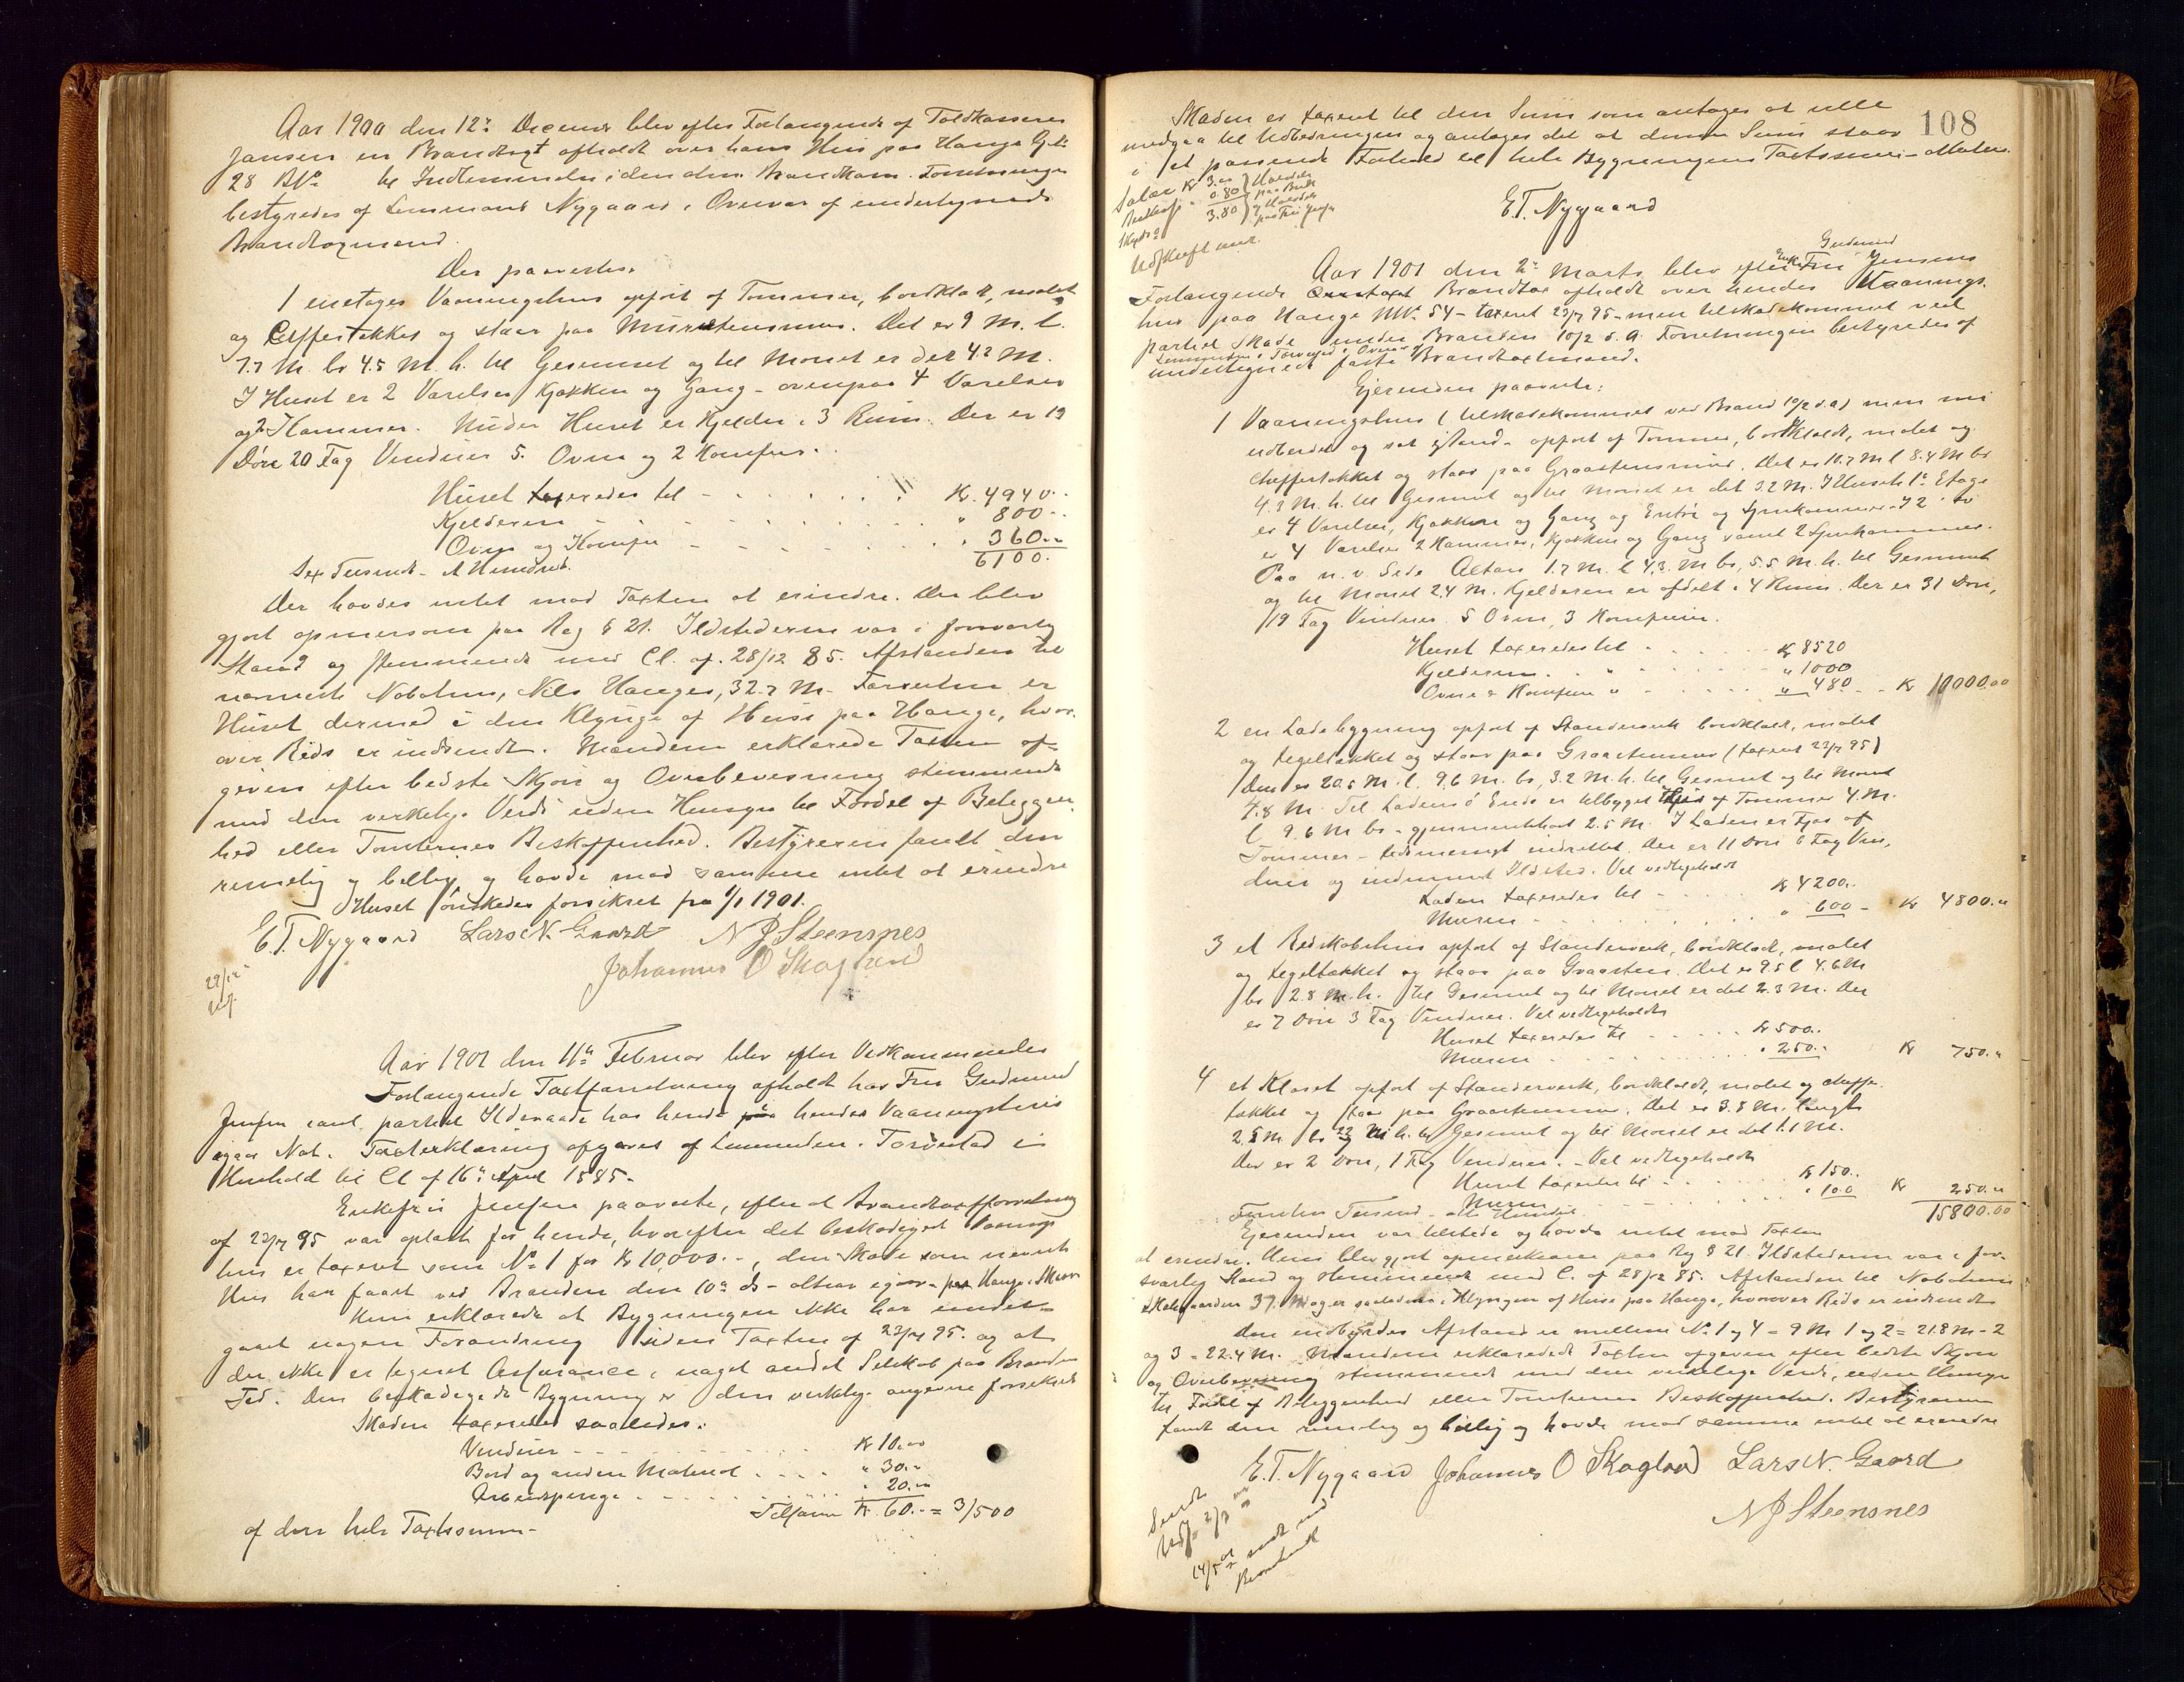 Aar 1900 den 12te Decembr blev efter Forlangende af Toldkasserer
Jansen en Brandtaxt afholdt over hans Hus paa Hauge Gdn
28 BNo til Indlemmelse i den alm. Brandkasse. Forretningen
bestyredes af Lensmand Nygaard i Overvær af undertegnede
Brandtaxmænd.
Der paavistes:
1 enetages Vaaningshus opført af Tømmer, bordklædt, malet
og skiffertækket og staar paa Murstensmur. Det er 9 M. l.
7.7 M. br 4.5 M. h. til Gesimset og til Mønet er det 4.2 M.
I Huset er 2 Værelser Kjøkken og Gang – ovenpaa 4 Værelser
og 2 Kammer. Under Huset er Kjelder i 3 Rum. Der er 19
Døre 20 Fag Vinduer 5 Ovne og 2 Komfur.
Huset taxeredes til – Kr. 4940..
Kjelderen – " 800..
Ovne og Komfur – " 360..
Sex Tusinde – et Hundrede. 6100.
Der havdes intet mod Taxten at erindre. Der blev
gjort opmerksom paa Reg § 21. Ildstederne var i forsvarlig
Stand og stemmende med Cl. af 28/12 85. Afstanden til
nærmeste Nabohus, Nils Hauges, 32.7 M. Forresten er
Huset dermed i den Klynge af Huse paa Hauge, hvor-
over Rids er indsendt. Mændene erklærede Taxten af-
given efter bedste Skjøn og Overbevisning stemmende
med den verkelige Verdi uden Hensyn til Fordel af Beliggen-
hed eller Tomternes Beskaffenhed. Bestyreren fandt den
rimelig og billig og havde mod samme intet at erindre
Huset ønskedes forsikret fra 1/1 1901.
E. T. Nygaard Lars N. Gaard N J Steensnes
Johannes O Skogland
29/12
Udf.
Aar 1901 den 11te Februar blev efter Vedkommendes
Forlangende Taxtforretning afholdt hos Fru Gudmund
Jensen anl. partiel Ildsvaade hos hende paa hendes Vaaningshus
igaar Nat. Taxterklæring afgaves af Lensmanden i Torvestad i
Henhold til Cl af 16de April 1885.
Enkefru Jensen paaviste, efter at Brandtaxtforretning
af 23/7 95 var oplæst for hende, hvorefter det beskadiget Vaanings-
hus er taxeret som No 1 for Kr 10,000.–, den Skade som nævnte
Hus har faaet ved Branden den 10de ds – altsaa igaar paa Hauge i Skaare
Hun erklærede at Bygningen ikke har under-
gaaet nogen Forandring siden Taxten af 23/7 95. og at
der ikke er tegnet Assurance i noget andet Selskab paa Brandens
Tid. Den beskadigede Bygning er den virkelig angivne forsikrede
Skaden taxeredes saaledes:
Vinduer – Kr 10.00
Bord og andre Material " 30..
Arbeidspenge " 20..
Tilsammen Kr. 60.. = 3/500
af den hele Taxtsum –
108
Skaden er taxeret til den Sum som antages at ville
medgaa til Udbedringen og antages det at denne Sum staar
i et passende Forhold til hele Bygningens Taxtsum –
Salær Kr 3.00
0.80
3.80
Udskrift
E. T. Nygaard
Gudmund
Aar 1901 den 2de Marts blev efter Enke Fru Jensens
Forlangende Brandtax afholdt over hendes Vaanings-
hus paa Hauge MN. 54 – taxeret 23/7 95 – men tilskadekommet ved
partiel Skade under Branden 10/2 d. A. Forretningen bestyredes af
Lensmanden i Torvestad i Overvær af
undertegnede faste Brandtaxtmænd.
Eierinden paaviste:
1 Vaaningshus (tilskadekommet ved Brand 10/2 d.a) men nu
udbedret og sat istand – opført af Tømmer, bordklædt, malet og
skiffertækket og staar paa Graastensmur. Det er 10.7 M l 8.4 M br
4.3 M. h. til Gesimset og til Mønet er det 3.2 M. I Husets 1ste Etage
er 4 Værelser, Kjøkken og Gang og Entré og Spisekammer. I 2den
er 4 Værelser 2 Kammer, Kjøkken og Gang samt 2 Spisekammer.
Paa n. v. Side Altan 1.7 M. l 4.3. M br, 5.5 M. h. til Gesimset
og til Mønet 2.4 M. Kjelderen er afdelt i 4 Rum. Der er 31 Døre,
19 Fag Vinduer 5 Ovne, 3 Komfurer.
Huset taxeredes til Kr 8520
Kjelderen " " 1000
Ovne & Komfurer " " 480 – Kr 10000.00
2 en Ladebygning opført af Stenderverk bordklædt, malet
og tegeltækket og staar paa Graastensmur (taxeret 23/7 95)
Den er 20.5 M. l. 9.6 M. br, 3.2 M. h. til Gesimset og til Mønet
4.8 M. Til Ladens ø Ende er tilbygget Fjøs af Tømmer 4. M.
l 9.6 M br – gjennemsnitshøit 2.5 M. I Laden er Fjøs af
Tømmer – tidsmessigt indrettet. Der er 11 Døre 6 Fag Vin-
duer og indmuret Ildsted. Vel vedligeholdt
Laden taxeredes til Kr 4200..
Muren " 600 – Kr 4800..
3 et Redskabshus opført af Stenderverk, bordklædt, malet
og tegeltækket og staar paa Graasten. Det er 9.5 l 4.6 M
br 2.8 M. h. til Gesimset og til Mønet er det 2.3 M. Der
er 7 Døre 3 Fag Vinduer. Vel vedligeholdt
Huset taxeredes til Kr 500..
Muren " 250.. Kr 750..
4 et Kloset opført af Stenderverk, bordklædt, malet og skiffer-
tækket og staar paa Graastensmur. Det er 3.8 M. langt
2.5 M br 2.2 M h. til Gesimset og til Mønet er det 1.1 M.
Der er 2 Døre, 1 Fag Vinduer. – Vel vedligeholdt
Huset taxeredes til Kr 150..
Muren " 100 Kr 250..
Femten Tusind – otte Hundrede. 15800.00
Eierinden var tilstede og havde intet mod Taxten
at erindre. Hun blev gjort opmerksom paa Reg § 21. Ildstederne var i for-
svarlig Stand og stemmende med C. af 28/12 85. Afstanden til Nabohus
Skolegaarden 37. M og er saaledes i Klyngen af Huse paa Hauge, hvorover Rids er indsendt
Den indbyrdes Afstand er mellem No 1 og 4 = 9 M 1 og 2 = 21.8 M – 2
og 3 – 22.4 M. Mændene erklærede Taxten afgiven efter bedste Skjøn
og Overbevisning stemmende med den virkelige Verdi, uden Hensyn
til Fordel af Beliggenhed eller Tomternes Beskaffenhed. Bestyreren
fandt den rimelig og billig og havde mod samme intet at erindre
E. T. Nygaard Johannes O Skogland Lars N. Gaard
N J Steensnes
Sendt
Udf. 2/3
14/5 sendt